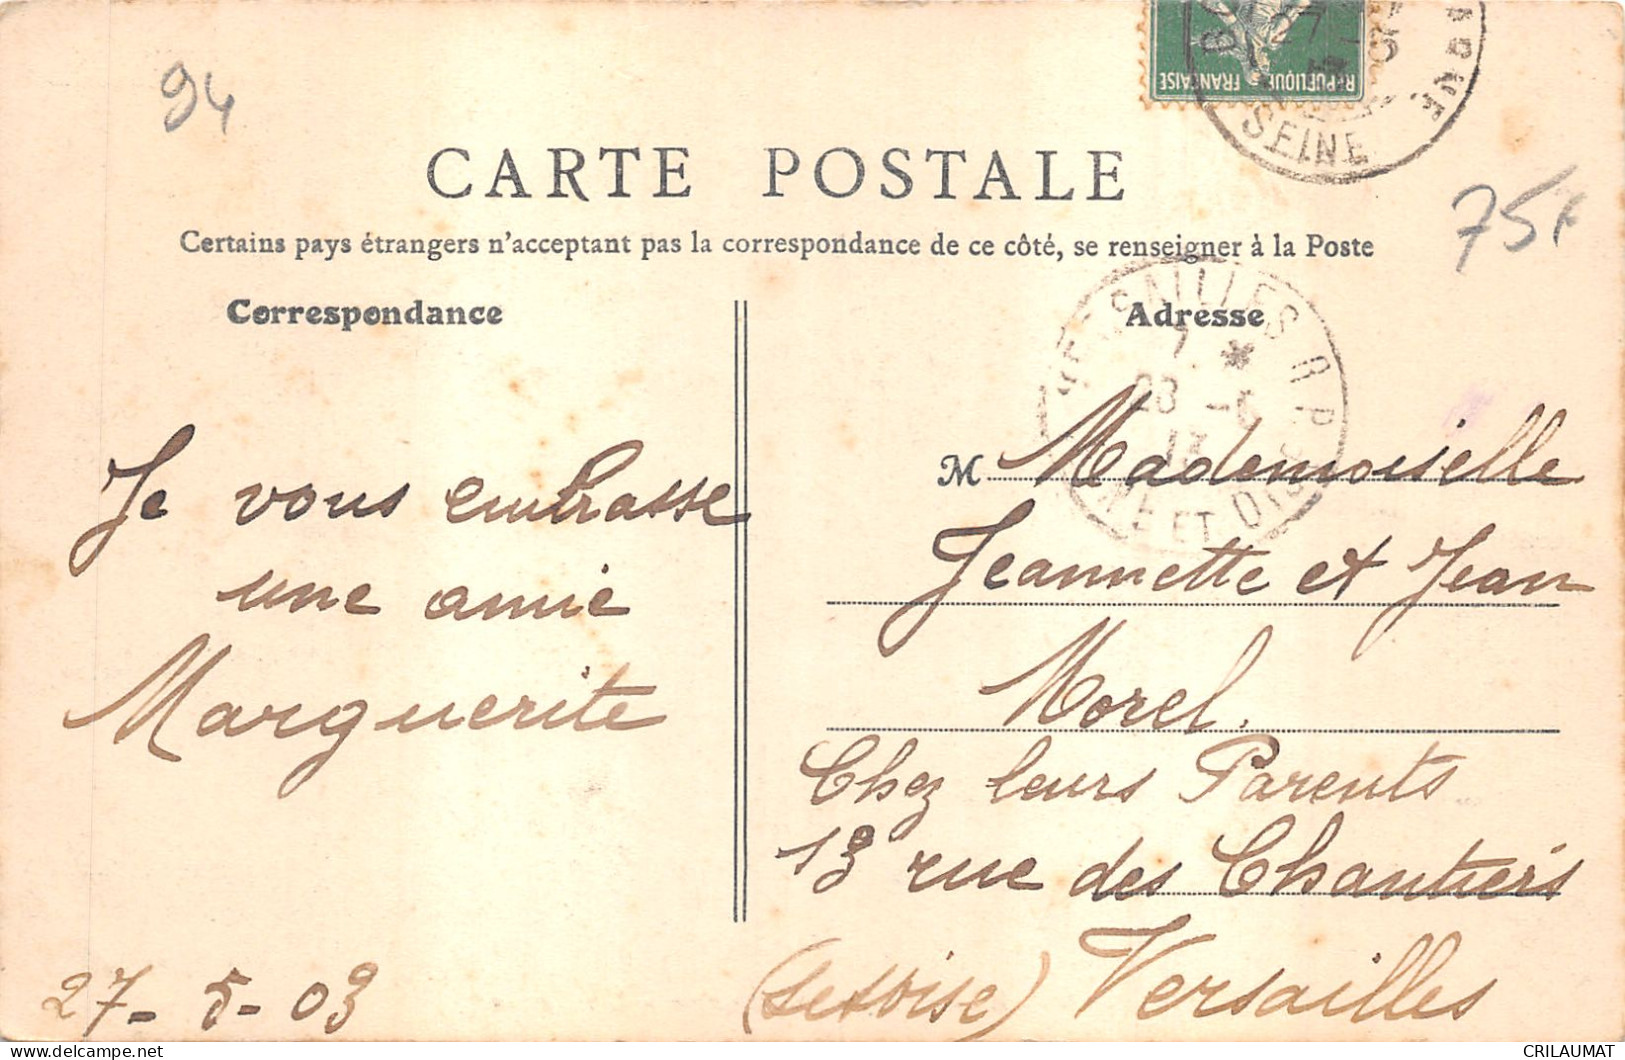 94
RÉPUBLIQUE FRANÇAISE
27 -5
SEINE
CARTE POSTALE
75F
Certains pays étrangers n'acceptant pas la correspondance de ce côté, se renseigner à la Poste
Correspondance
Adresse
VERSAILLES R.P.
7 *
28 -5
13
ET OISE
Je vous embrasse
une amie
Marguerite
27-5-03
M Mademoiselle
Jeannette et Jean
Morel.
Chez leurs Parents
13 rue des Chantiers
Versailles
CRILAUMAT